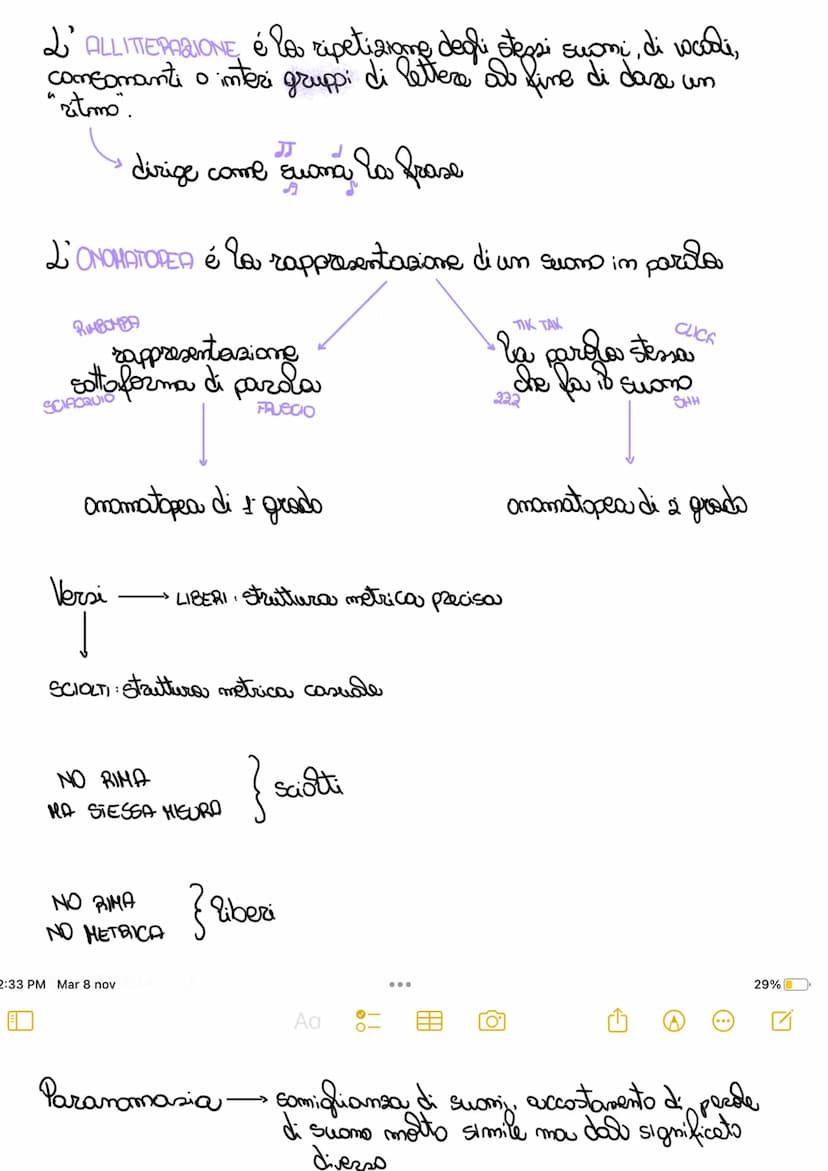 L' ALLITTERAZIONE é la ripetizione degli stessi suoni, di vocali,
consonanti o interi gruppi di lettere al fine di dare un
"ritmo".
dirige come suona la frase
L' ONOMATOPEA é la rappresentazione di un suono in parola
RIMBOMBA
rappresentazione
sottoforma di parola
SCIACQUIO
FRUSCIO
TIK TAK
CLICK
la parola stessa
che fa il suono
ZZZ
SHH
onomatopea di 1° grado
onomatopea di 2 grado
Versi → LIBERI: struttura metrica precisa
SCIOLTI: struttura metrica casuale
NO RIMA
MA STESSA MISURA
} sciolti
NO RIMA
NO METRICA
} liberi
2:33 PM Mar 8 nov
29%
Aa
Paranomasia → somiglianza di suoni, accostamento di parole
di suono molto simile ma dal significato
diverso